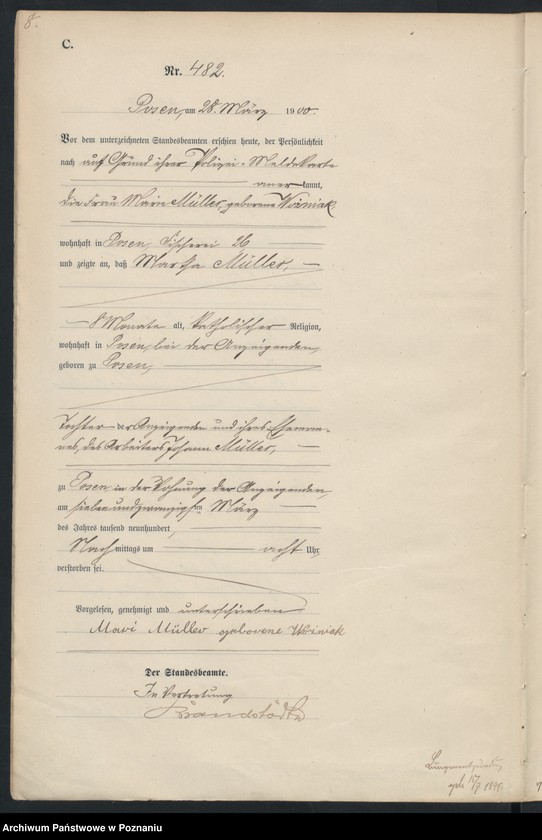 8.
C.
Nr. 482.
Posen, am 28. März 1900.
Vor dem unterzeichneten Standesbeamten erschien heute, der Persönlichkeit
nach auf Grund ihrer Polizei-Meldekarte
anerkannt,
die Frau Marie Müller, geborene Woźniak
wohnhaft in Posen, Fischerei 26
und zeigte an, daß Martha Müller,
8 Monate alt, katholischer Religion,
wohnhaft in Posen, bei der Anzeigenden,
geboren zu Posen,
Tochter der Anzeigenden und ihres Eheman-
nes, des Arbeiters Johann Müller,
zu Posen, in der Wohnung der Anzeigenden
am siebenundzwanzigsten März
des Jahres tausend neunhundert,
Nachmittags um acht Uhr
verstorben sei.
Vorgelesen, genehmigt und unterschrieben
Mari Müller geborene Woźniak
Der Standesbeamte.
In Vertretung
Brandstädter
Lungenentzündung
geb. 1899
Archiwum Państwowe w Poznaniu